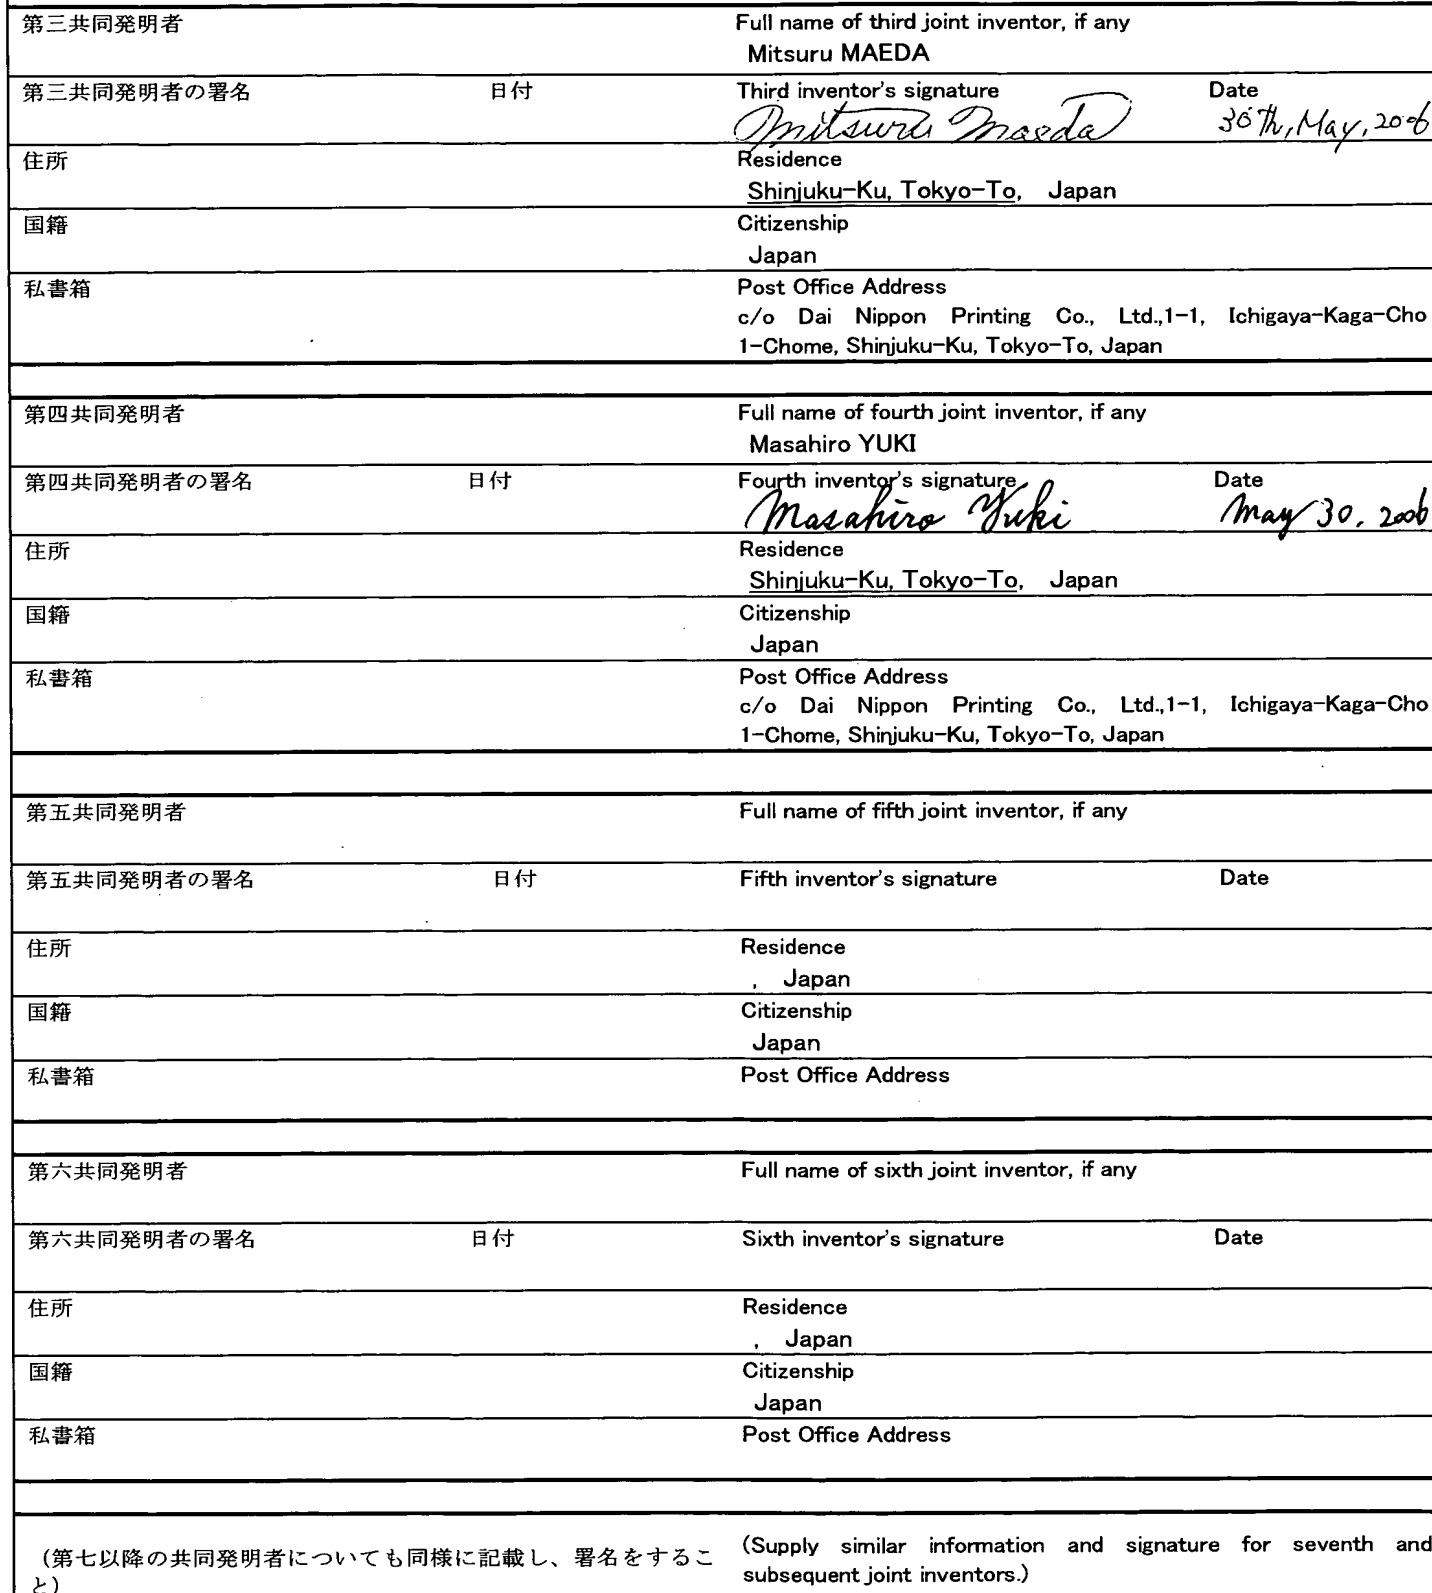 第三共同発明者 Full name of third joint inventor, if any
Mitsuru MAEDA
第三共同発明者の署名 日付 Third inventor's signature Date
Mitsuru Maeda 30th, May, 2006
住所 Residence
Shinjuku-Ku, Tokyo-To, Japan
国籍 Citizenship
Japan
私書箱 Post Office Address
c/o Dai Nippon Printing Co., Ltd.,1-1, Ichigaya-Kaga-Cho
1-Chome, Shinjuku-Ku, Tokyo-To, Japan
第四共同発明者 Full name of fourth joint inventor, if any
Masahiro YUKI
第四共同発明者の署名 日付 Fourth inventor's signature Date
Masahiro Yuki May 30, 2006
住所 Residence
Shinjuku-Ku, Tokyo-To, Japan
国籍 Citizenship
Japan
私書箱 Post Office Address
c/o Dai Nippon Printing Co., Ltd.,1-1, Ichigaya-Kaga-Cho
1-Chome, Shinjuku-Ku, Tokyo-To, Japan
第五共同発明者 Full name of fifth joint inventor, if any
第五共同発明者の署名 日付 Fifth inventor's signature Date
住所 Residence
, Japan
国籍 Citizenship
Japan
私書箱 Post Office Address
第六共同発明者 Full name of sixth joint inventor, if any
第六共同発明者の署名 日付 Sixth inventor's signature Date
住所 Residence
, Japan
国籍 Citizenship
Japan
私書箱 Post Office Address
(第七以降の共同発明者についても同様に記載し、署名をするこ
と)
(Supply similar information and signature for seventh and
subsequent joint inventors.)